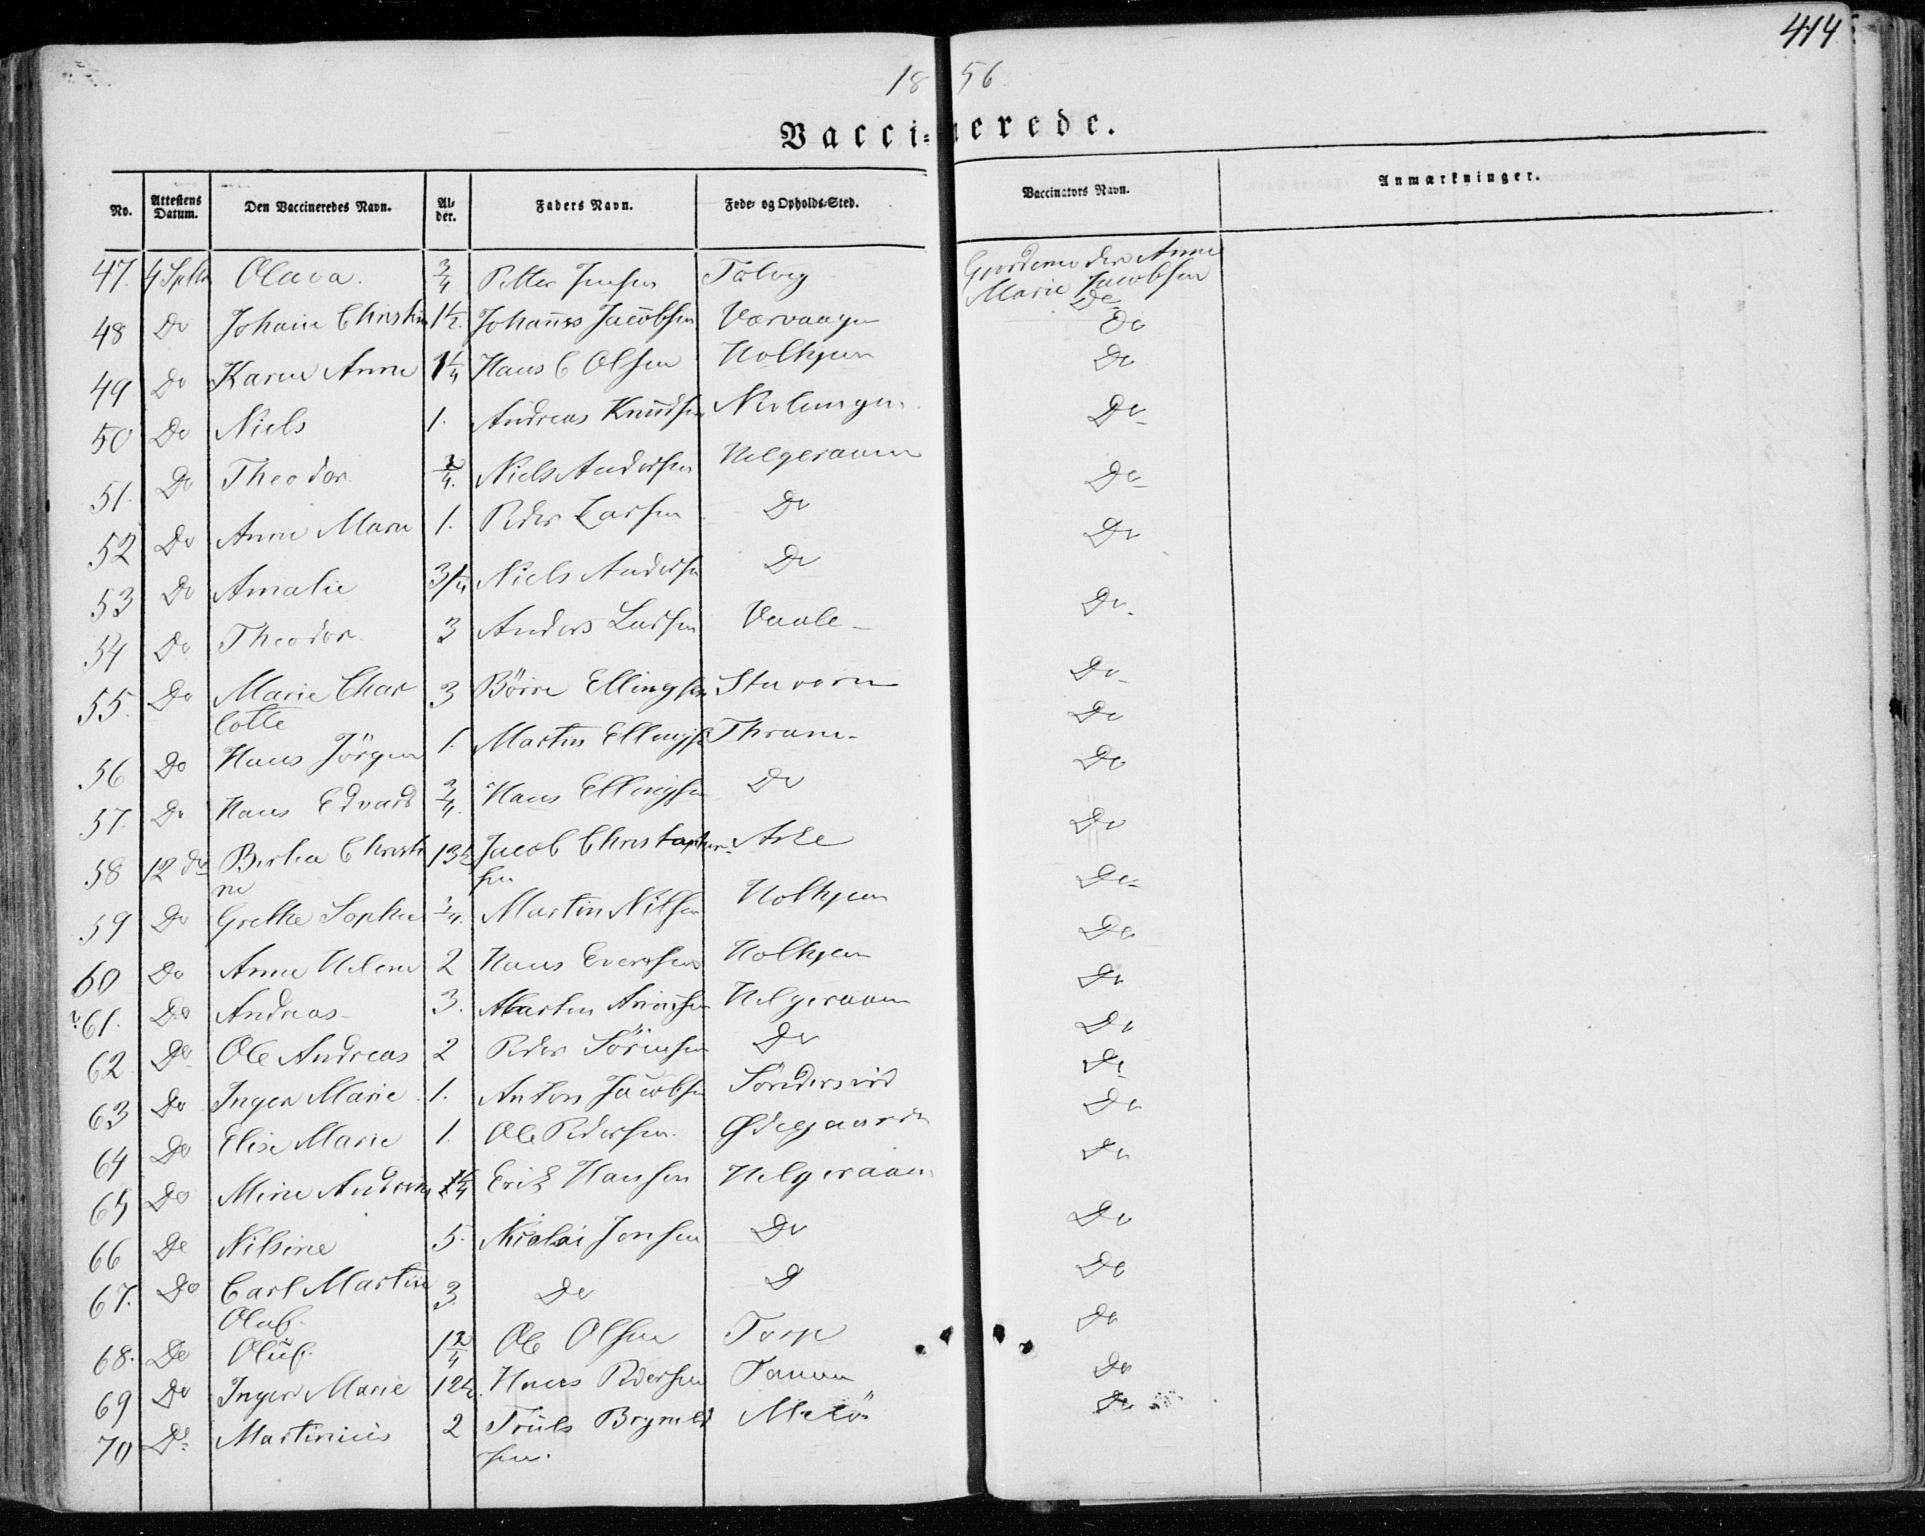 414
18 56
Vaccinerede.
No. Attestens Datum. Den Vaccineredes Navn. Alder. Faders Navn. Føde- og Opholds-Sted. Vaccinators Navn. Anmærkninger.
47. 4 Septbr Olava. 3/4 Petter Jensen Tolvig Gjordemoder Anne
Marie Jacobsen
Do
48 Do Johane Christin 1 1/2. Johannes Jacobsen Varvaagen Do
49 Do Karen Anne 1 1/4 Hans C Olsen Holtjern Do
50 Do Niels 1. Andreas Knudsen Nevlungen Do
51. Do Theodor 3/4. Niels Andersen Helgeraaen Do
52 Do Anne Marie 1. Peder Larsen Do Do
53 Do Amalie 3 1/4 Niels Andersen Do Do
54 Do Theodor 3 Anders Ludsen Vaale Do
55. Do Marie Char 3 Börre Ellingsen Stavern Do
lotte
56 Do Hans Jörgen 1. Martin Ellingsen Thram Do
57. Do Hans Edvard 3/4. Hans Ellingsen Do Do
58 12 do Berthe Christi 13 1/2 Jacob Christophersen Aske Do
ne
59 Do Grethe Sophie 3/4. Martin Nilsen Holtjern Do
60 Do Anne Helene 2 Hans Evensen Holtjern Do
61. Do Andreas 3. Martin Helgeraaen Do
62 Do Ole Andreas 2 Peder Sörensen Do Do
63 Do Inger Marie 1. Anton Jacobsen Do
64 Do Elise Marie 1. Ole Pedersen Ødegaarden Do
65 Do Mine Andrea 1/4 Erik Hansen Helgeraaen Do
66 Do Nilsine 5. Nicolai Jensen Do Do
67. Do Carl Martin 3. Do D Do
Oluf.
68. Do Oluf. 1 2/4 Ole Olsen Torp Do
69 Do Inger Marie 12 1/2. Hans Pedersen Tanum Do
70 Do Martinius 2 Truls Brynild Melö Do
sen.